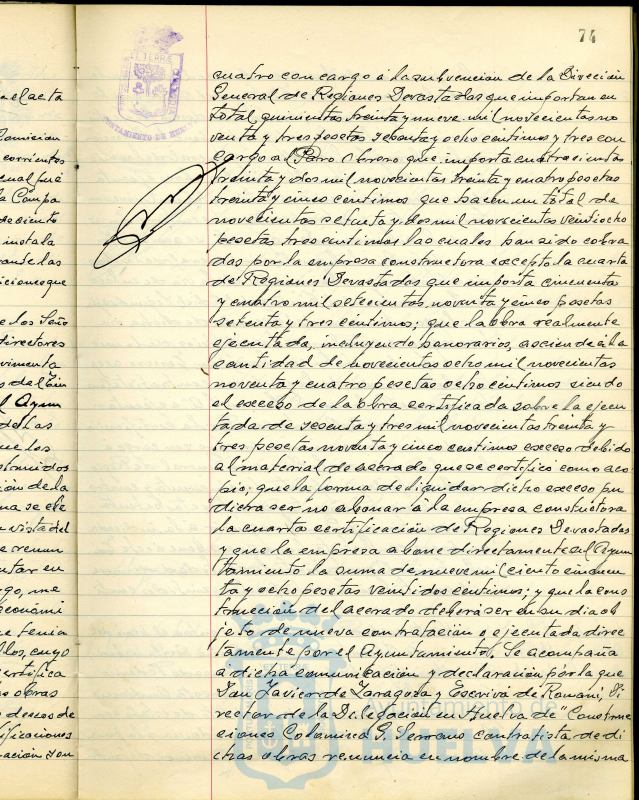 74
cuatro con cargo a la subvencion de la Direccion
General de Regiones Devastadas que importan en
total quinientas treinta y nueve mil novecientas no
venta y tres pesetas setenta y ocho centimos y tres con
cargo al Paro Obrero que importa cuatrocientas
treinta y dos mil novecientas treinta y cuatro pesetas
treinta y cinco centimos que hacen un total de
novecientas setenta y dos mil novecientas veintiocho
pesetas tres centimos las cuales han sido cobra
das por la empresa constructora excepto la cuarta
de Regiones Devastadas que importa cincuenta
y cuatro mil setecientas noventa y cinco pesetas
setenta y tres centimos; que la obra realmente
ejecutada, incluyendo honorarios, asciende á la
cantidad de novecientas ocho mil novecientas
noventa y cuatro pesetas ocho centimos siendo
el exceso de la obra certificada sobre la ejecu
tada de sesenta y tres mil novecientas treinta y
tres pesetas noventa y cinco centimos exceso debido
al material de acerado que se certificó como aco
pio; que la forma de liquidar dicho exceso pu
diera ser no abonar á la empresa constructora
la cuarta certificación de Regiones Devastadas
y que la empresa abone directamente al Ayun
tamiento la suma de nueve mil ciento cincuen
ta y ocho pesetas veintidos centimos; y que la cons
trucción del acerado deberá ser en su dia ob
jeto de nueva contratación o ejecutada direc
tamente por el Ayuntamiento. Se acompaña
a dicha comunicación y declaración por la que
Don Javier de Zaragoza y Escrivá de Romaní, Di
rector de la Delegacion en Huelva de "Construc
ciones Colomina G. Serrano contratista de di
chas obras renuncia en nombre de la misma
Ayuntamiento de
HUELVA
el acta
corrientes
la Campa
de ciento
instala
ante las
de los Seño
directores
vimenta
l Ayun
de las
que los
ión de la
na se ele
n vista del
tar en
go, me
económi
e tenia
llos, cuyo
certifica
s obras
s deseos de
tificaciones
ación son